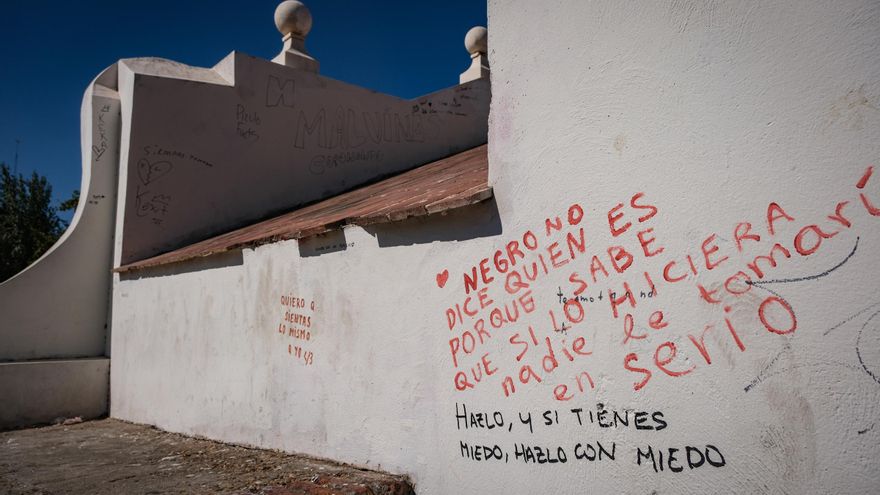 KEKA
Siempre
MALVINAS
QUIERO Q
SIENTAS
LO MISMO
Q YO
NEGRO NO
DICE QUIEN ES
PORQUE SABE
QUE SI LO HICIERA
nadie le tomaría
en serio
HAZLO, Y SI TIENES
MIEDO, HAZLO CON MIEDO